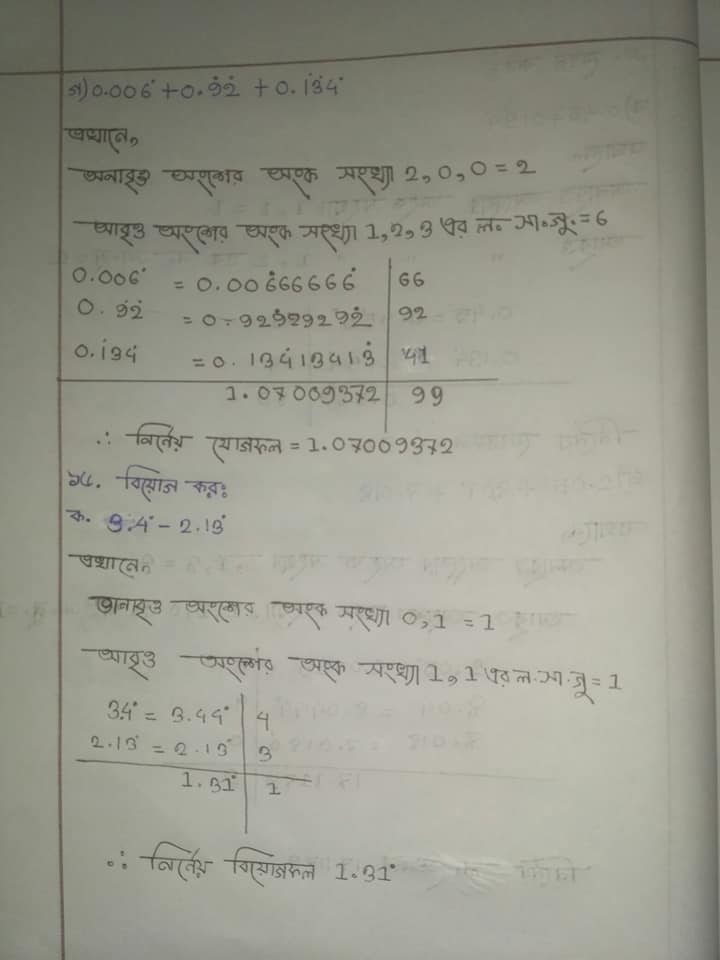 গ) 0.006̇ + 0.9̇2̇ + 0.1̇34̇
এখানে,
অনাবৃত্ত অংশের অংক সংখ্যা 2, 0, 0 = 2
আবৃত্ত অংশের অংক সংখ্যা 1, 2, 3 এর ল. সা. গু. = 6
0.006̇ = 0.006̇66666̇ | 66
0.9̇2̇ = 0.929̇29292̇ | 92
0.1̇34̇ = 0.134̇13413̇ | 41
1.07009372 | 99
∴ নির্ণেয় যোগফল = 1.07009372
১৫. বিয়োগ কর:
ক. 3.4̇ - 2.13̇
এখানে,
অনাবৃত্ত অংশের অংক সংখ্যা 0, 1 = 1
আবৃত্ত অংশের অংক সংখ্যা 1, 1 এর ল. সা. গু = 1
3.4̇ = 3.44̇ | 4
2.13̇ = 2.13̇ | 3
1.31̇ | 1
∴ নির্ণেয় বিয়োগফল 1.31̇